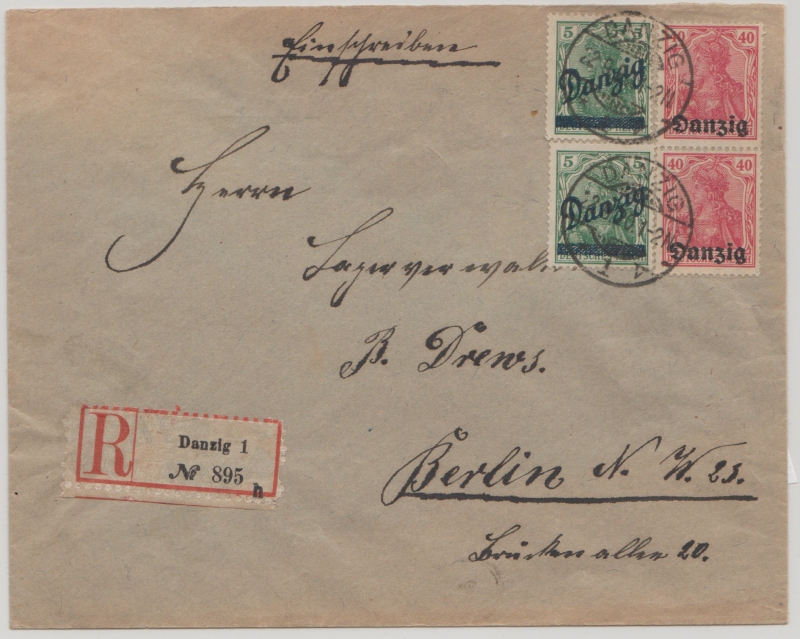 Einschreiben
5 5 40 40
Danzig Danzig
DANZIG
1-2N
5 5 40 40
Danzig Danzig
DANZIG
1-2N
Herrn
Lagerverwalter
B. Drews.
R Danzig 1
№ 895 h
Berlin N. W. 23.
Brückenallee 20.